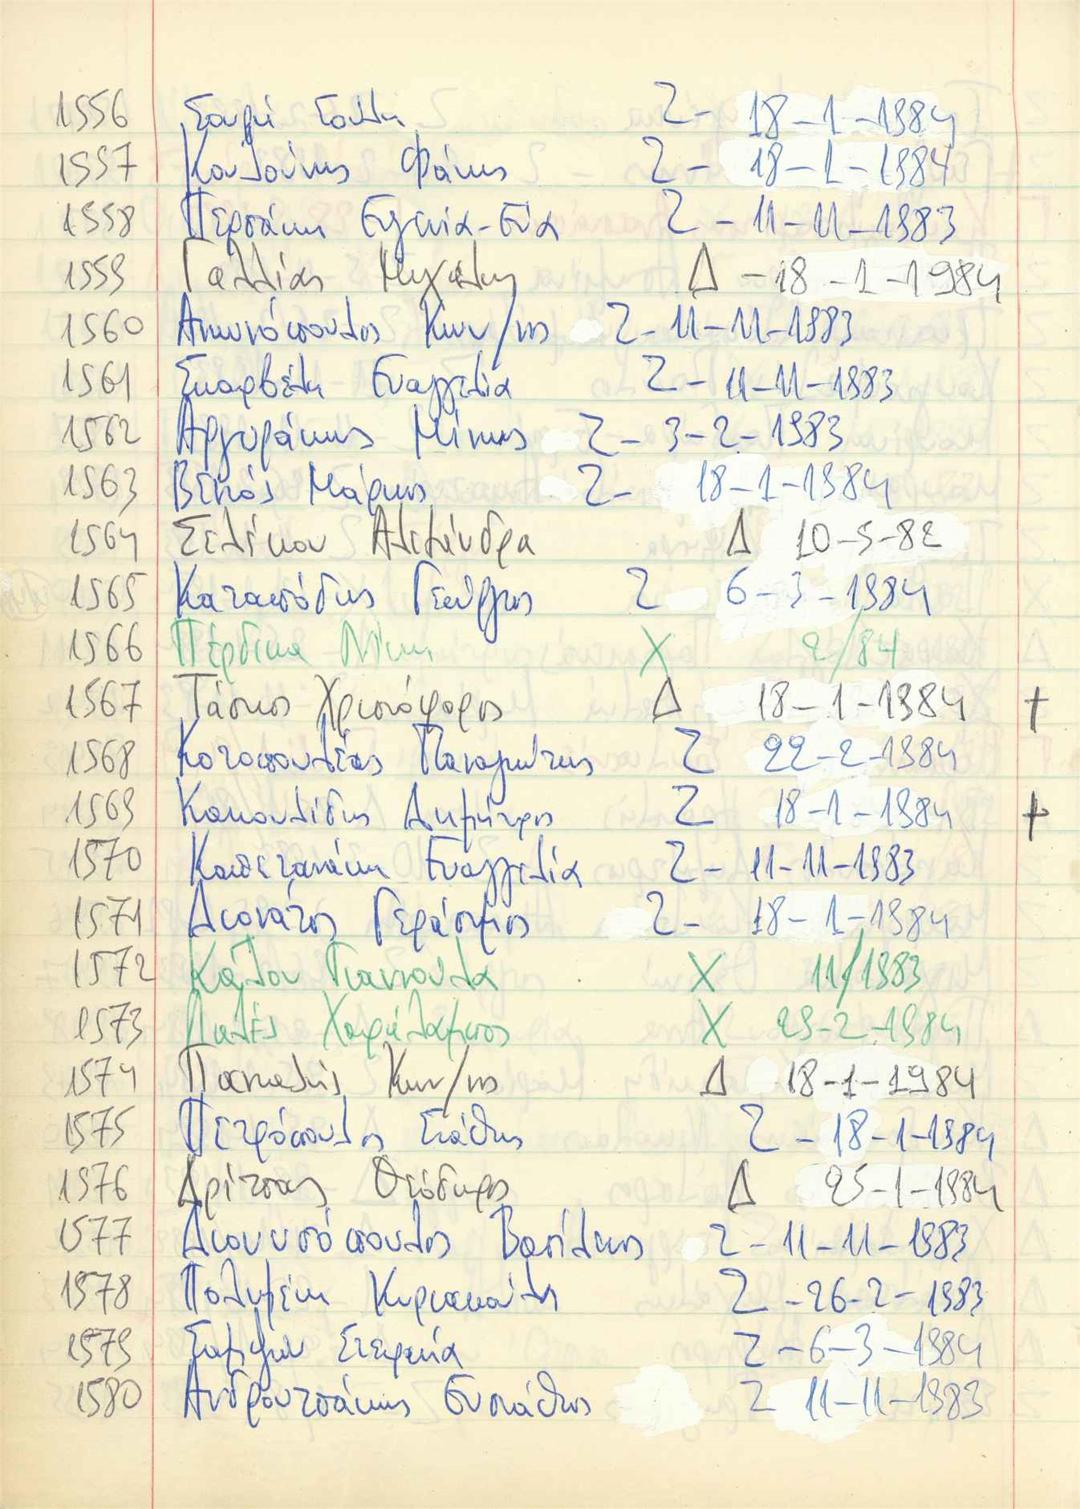 1556 Σουρή Σούλη Ζ- 18-1-1984
1557 Κουλούκης Φάνης Ζ- 18-1-1984
1558 Περσάκη Ευγενία-Εύα Ζ-11-11-1983
1559 Γαλλίας Μιχάλης Δ -18-1-1984
1560 Αντωνόπουλος Κων/νος Ζ-11-11-1983
1561 Σκαρβέλη Ευαγγελία Ζ-11-11-1983
1562 Αργυράκης Μίνως Ζ-3-2-1983
1563 Βενός Μάρκος Ζ- 18-1-1984
1564 Σελίνου Αλεξάνδρα Δ 10-5-82
1565 Καταπόδης Γεώργιος Ζ 6-3-1984
1566 Πέρδικα Νίκη Χ 2/84
1567 Τάσιος Χριστόφορος Δ 18-1-1984 +
1568 Κοτοπουλέας Παναγιώτης Ζ 22-2-1984
1569 Κακουλίδης Δημήτρης Ζ 18-1-1984 +
1570 Καπετανάκη Ευαγγελία Ζ-11-11-1983
1571 Διονάτος Γεράσιμος Ζ- 18-1-1984
1572 Κάλου Γιαννούλα Χ 11/1983
1573 Χαράλαμπος Χ 29-2-1984
1574 Πασχαλής Κων/νος Δ 18-1-1984
1575 Πετρόπουλος Στάθης Ζ-18-1-1984
1576 Δρίτσας Θεόδωρος Δ 25-1-1984
1577 Διονυσόπουλος Βασίλειος Ζ-11-11-1983
1578 Πολυμένη Κυριακούλη Ζ-26-2-1983
1579 Στεφανία Ζ-6-3-1984
1580 Ανδρουτσάκης Ευστάθιος Ζ 11-11-1983